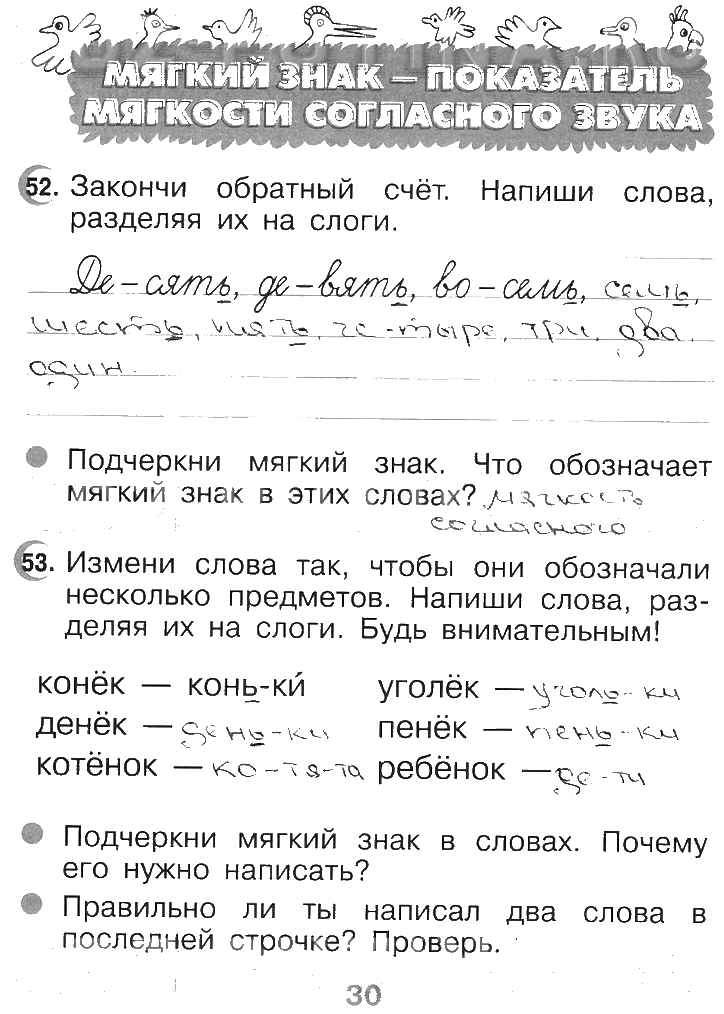 МЯГКИЙ ЗНАК – ПОКАЗАТЕЛЬ
МЯГКОСТИ СОГЛАСНОГО ЗВУКА
52. Закончи обратный счёт. Напиши слова,
разделяя их на слоги.
Де–сять, де–вять, во–семь, семь,
шесть, пять, че-тыре, три, два,
один.
Подчеркни мягкий знак. Что обозначает
мягкий знак в этих словах? мягкость
согласного
53. Измени слова так, чтобы они обозначали
несколько предметов. Напиши слова, раз-
деляя их на слоги. Будь внимательным!
конёк — конь-ки́ уголёк — уголь-ки
денёк — день-ки пенёк — пень-ки
котёнок — ко-тя-та ребёнок — де-ти
Подчеркни мягкий знак в словах. Почему
его нужно написать?
Правильно ли ты написал два слова в
последней строчке? Проверь.
30